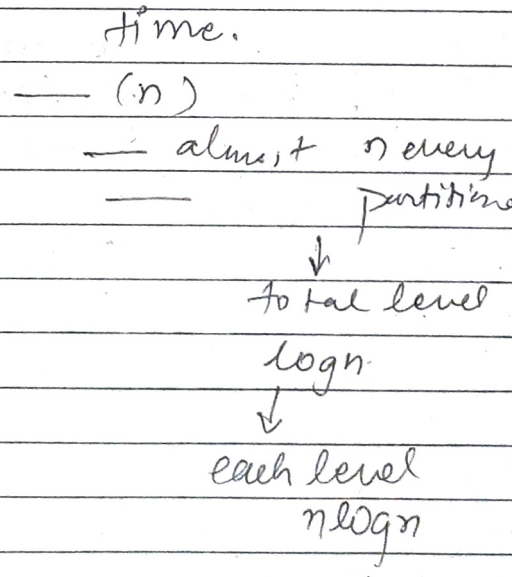 time.
— (n)
— almost n every
— partitions
↓
total level
logn
↓
each level
nlogn